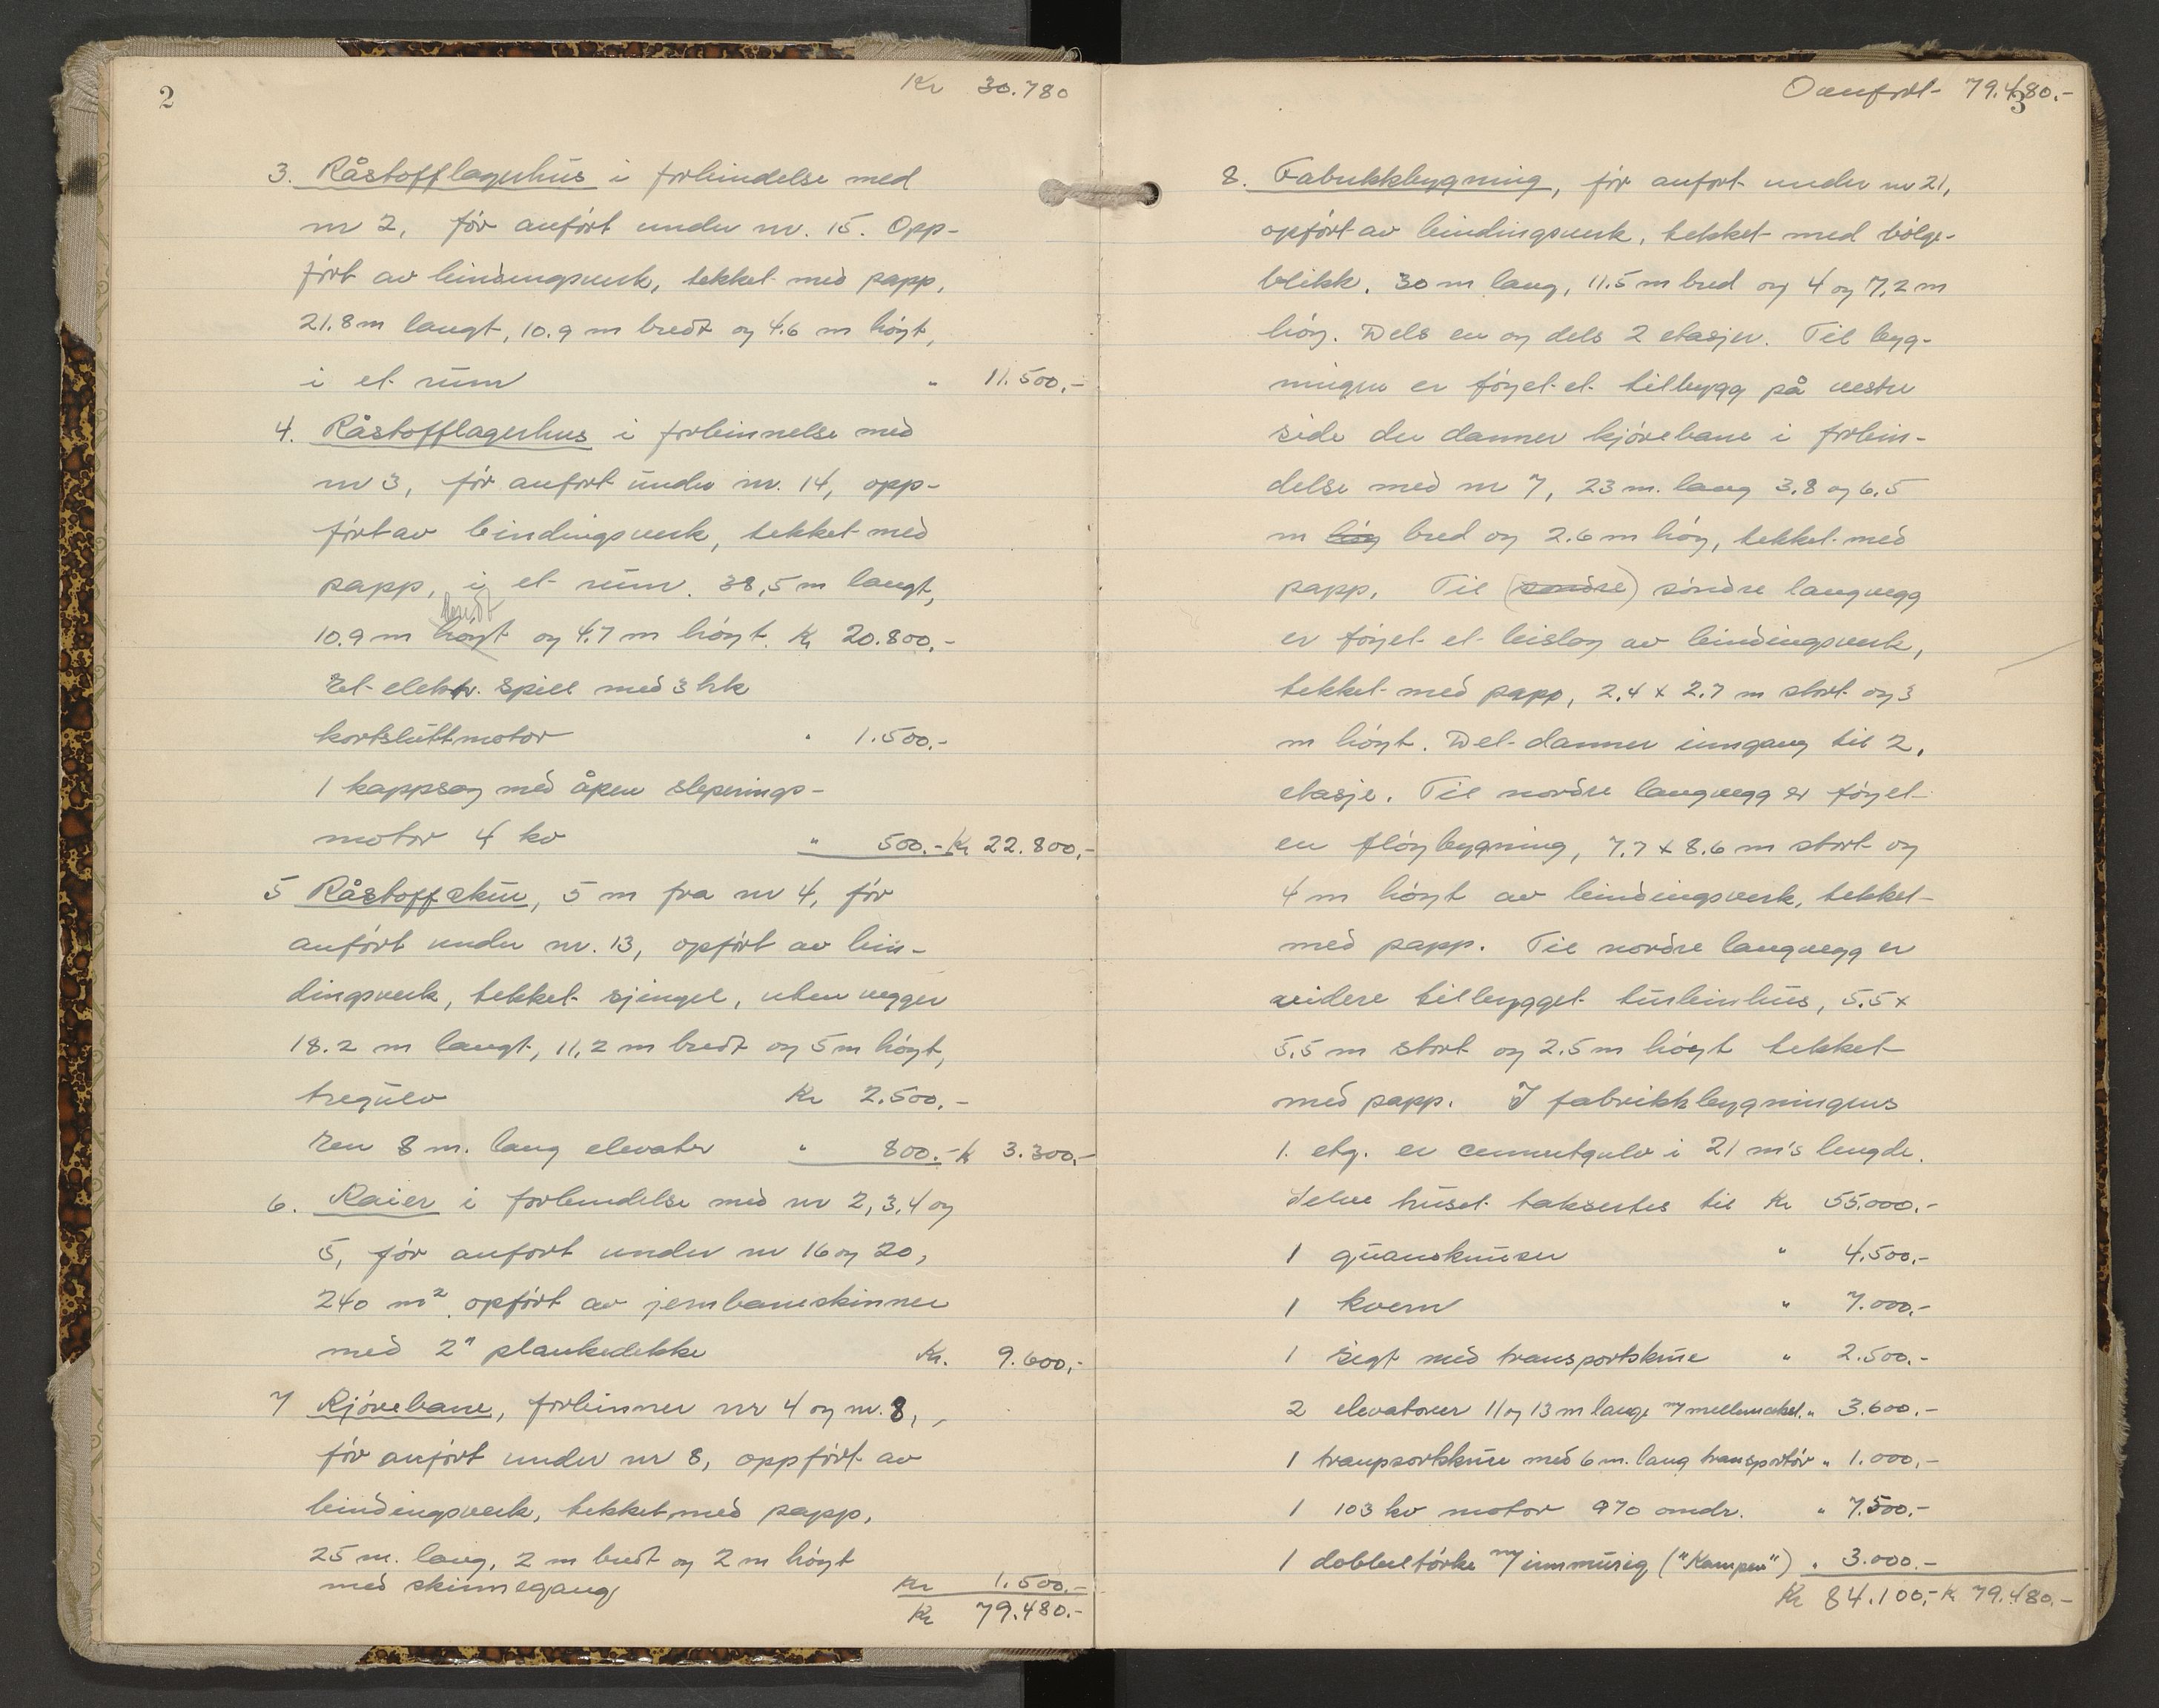 2
Kr 30.780
3. Råstofflagerhus i forbindelse med
nr 2, før anført under nr. 15. Opp-
ført av bindingsverk, tekket med papp,
21.8 m langt, 10.9 m bredt og 4.6 m høyt,
i et rum " 11.500,-
4. Råstofflagerhus i forbinnelse med
nr 3, før anført under nr. 14, opp-
ført av bindingsverk, tekket med
papp, i et rum. 38,5 m langt,
bredt
10.9 m høyt og 4.7 m høyt. Kr 20.800.-
Et elektr. spill med 3 hk
kortsluttmotor " 1.500.-
1 kappsag med åpen sleperings-
motor 4 kv " 500.- Kr 22.800,-
5 Råstoffskur, 5 m fra nr 4, før
anført under nr. 13, opført av bin-
dingsverk, tekket sjingel, uten vegger
18.2 m langt, 11,2 m bredt og 5 m høyt,
tregulv Kr 2.500.-
En 8 m. lang elevator " 800.- Kr 3.300,-
6. Kaier i forbindelse med nr 2, 3, 4 og
5, før anført under nr 16 og 20,
240 m² opført av jernbaneskinner
med 2" plankedekke Kr. 9.600,-
7 Kjørebane, forbinner nr 4 og nr. 8,
før anført under nr 8, oppført av
bindingsverk, tekket med papp,
25 m. lang, 2 m bredt og 2 m høyt
med skinnegang Kr 1.500.-
Kr 79.480.-
Overført 79.480.-
3
8. Fabrikkbygning, før anført under nr 21,
opført av bindingsverk, tekket med bølge-
blikk. 30 m lang, 11.5 m bred og 4 og 7,2 m
høy. Dels en og dels 2 etasjer. Til byg-
ningen er føyet et tilbygg på vestre
side der danner kjørebane i forbin-
delse med nr 7, 23 m. lang 3.8 og 6.5
m høy bred og 2.6 m høy, tekket med
papp. Til (søndre) søndre langvegg
er føyet et bislag av bindingsverk,
tekket med papp, 2.4 x 2.7 m stort og 3
m høyt. Det danner inngang til 2.
etasje. Til nordre langvegg er føyet
en fløybygning, 7.7 x 8.6 m stort og
4 m høyt av bindingsverk, tekket
med papp. Til nordre langvegg er
videre tilbygget turbinhus, 5.5 x
5.5 m stort og 2.5 m høyt tekket
med papp. I fabrikkbygningens
1. etg. er cementgulv i 21 m's lengde.
Selve huset takseres til Kr 55.000.-
1 guanoknuser " 4.500.-
1 kvern " 7.000.-
1 sigt med transportskrue " 2.500.-
2 elevatorer 11 og 13 m lange m/mellemaksel. " 3.600.-
1 transportskrue med 6 m. lang transportør " 1.000,-
1 103 kv motor 970 omdr. " 7.500.-
1 dobbeltørke m/innmurig ("Kampen") " 3.000.-
Kr 84.100,- Kr 79.480.-